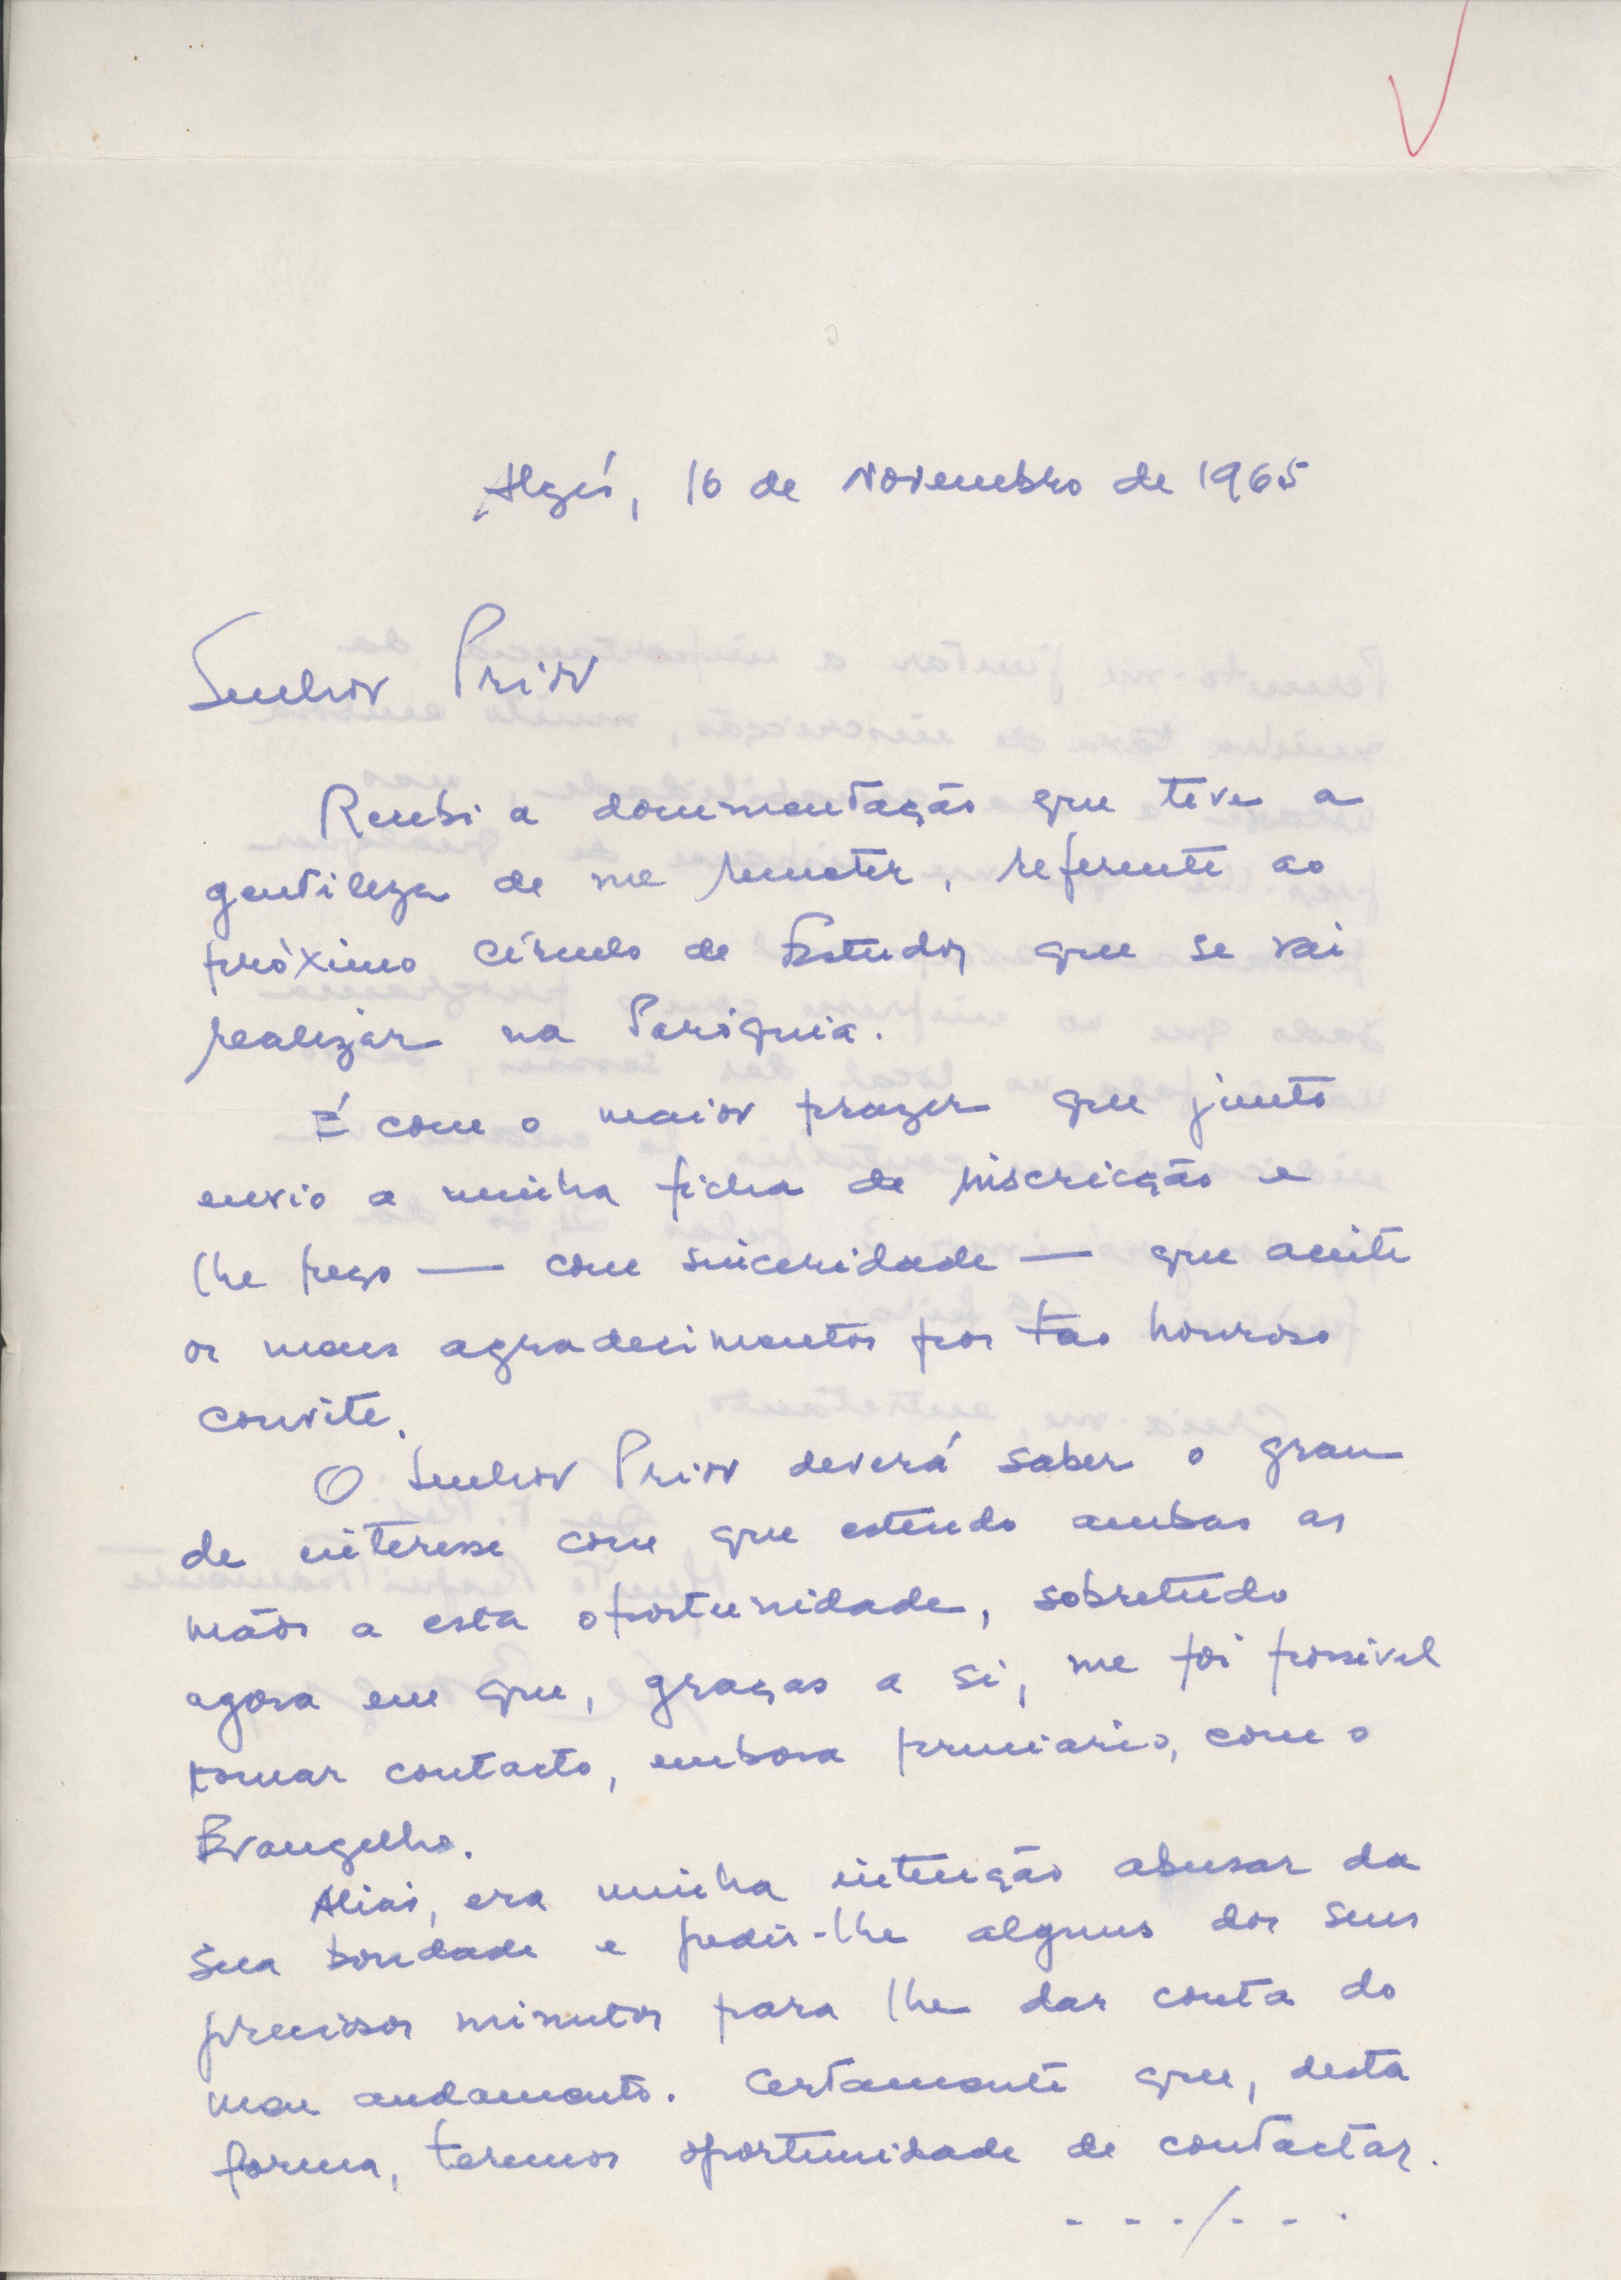 Algés, 16 de Novembro de 1965
Senhor Prior
Recebi a documentação que teve a
gentileza de me remeter, referente ao
próximo Círculo de Estudos que se vai
realizar na Paróquia.
É com o maior prazer que junto
envio a minha ficha de inscricção e
lhe peço — com sinceridade — que aceite
os meus agradecimentos por tão honroso
convite.
O Senhor Prior deverá saber o grau
de interesse com que estendo ambas as
mãos a esta oportunidade, sobretudo
agora em que, graças a si, me foi possível
tomar contacto, embora primário, com o
Evangelho.
Aliás, era minha intenção abusar da
sua bondade e pedir-lhe alguns dos seus
preciosos minutos para lhe dar conta do
meu andamento. Certamente que, desta
forma, teremos oportunidade de contactar.
. . ./. . .